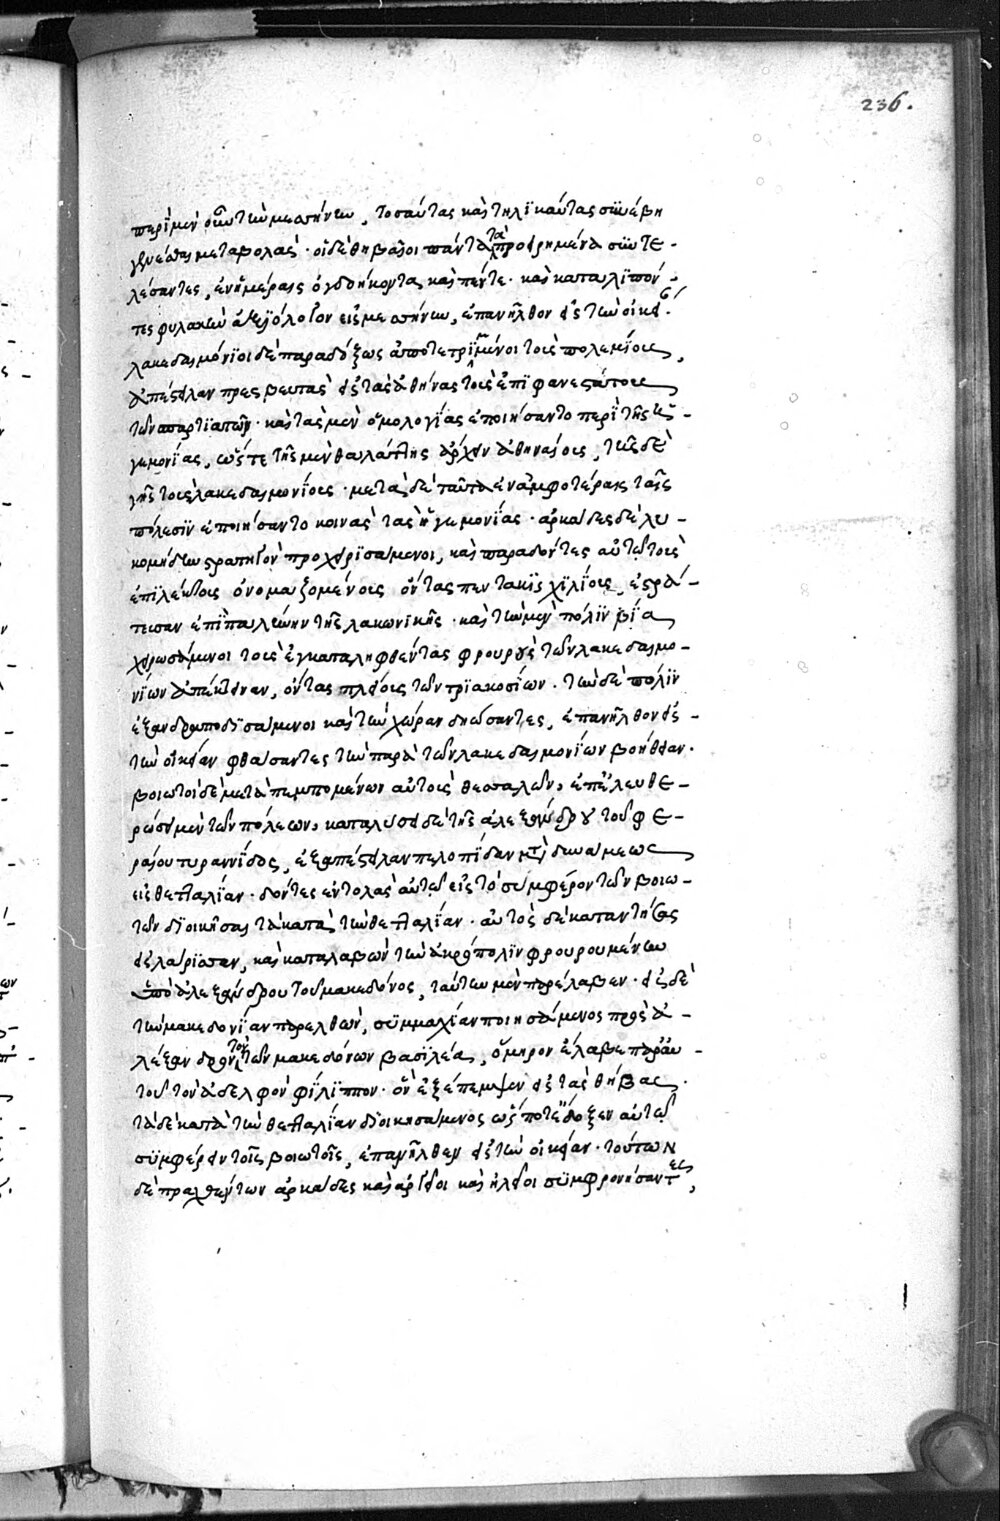 236.
περὶ μὲν οὖν τὴν μεσσήνην, τοσαύτας καὶ τηλικαύτας συνέβη
γενέσθαι μεταβολάς· οἱ δὲ θηβαῖοι πάντα τὰ προειρημένα συντε-
λέσαντες, ἐν ἡμέραις ὀγδοήκοντα καὶ πέντε· καὶ καταλιπόν-
τες φυλακὴν ἀξιόλογον εἰς μεσσήνην, ἐπανῆλθον εἰς τὴν οἰκεί.
λακεδαιμόνιοι δὲ παραδόξως ἀποτετριμμένοι τοὺς πολεμίους,
ἀπέστειλαν πρεσβευτὰς εἰς τὰς ἀθήνας τοὺς ἐπιφανεστάτους
τῶν σπαρτιατῶν· καὶ τὰς μὲν ὁμολογίας ἐποιήσαντο περὶ τῆς ἡ-
γεμονίας, ὥστε τῆς μὲν θαλάττης ἄρχειν ἀθηναίους, τῆς δὲ
γῆς τοὺς λακεδαιμονίους· μετὰ δὲ ταῦτα ἐν ἀμφοτέραις ταῖς
πόλεσιν ἐποιήσαντο κοινὰς τὰς ἡγεμονίας· ἀρκάδες δὲ λυ-
κομήδην στρατηγὸν προχειρισάμενοι, καὶ παραδόντες αὐτῷ τοὺς
ἐπιλέκτους ὀνομαζομένους ὄντας πεντακισχιλίους, ἐστρά-
τευσαν ἐπὶ παλλήνην τῆς λακωνικῆς· καὶ τὴν μὲν πόλιν βίᾳ
χειρωσάμενοι τοὺς ἐγκαταληφθέντας φρουροὺς τῶν λακεδαιμο-
νίων ἀπέκτειναν, ὄντας πλείους τῶν τριακοσίων. τὴν δὲ πόλιν
ἐξανδραποδισάμενοι καὶ τὴν χώραν δηώσαντες, ἐπανῆλθον εἰς
τὴν οἰκείαν φθάσαντες τὴν παρὰ τῶν λακεδαιμονίων βοήθειαν.
βοιωτοὶ δὲ μεταπεμπομένων αὐτοὺς θεσσαλῶν, ἐπ' ἐλευθε-
ρώσει μὲν τῶν πόλεων, καταλύσει δὲ τῆς ἀλεξάνδρου τοῦ φε-
ραίου τυραννίδος, ἐξαπέστειλαν πελοπίδαν μετὰ δυνάμεως
εἰς θετταλίαν· δόντες ἐντολὰς αὐτῷ εἰς τὸ συμφέρον τῶν βοιω-
τῶν διοικῆσαι τὰ κατὰ τὴν θετταλίαν· αὐτὸς δὲ καταντήσας
εἰς λάρισσαν, καὶ καταλαβὼν τὴν ἀκρόπολιν φρουρουμένην
ὑπὸ ἀλεξάνδρου τοῦ μακεδόνος, ταύτην μὲν παρέλαβεν· εἰς δὲ
τὴν μακεδονίαν παρελθὼν, συμμαχίαν ποιησάμενος πρὸς ἀ-
λέξανδρον τὸν τῶν μακεδόνων βασιλέα, ὅμηρον ἔλαβε παρ' αὐ-
τοῦ τὸν ἀδελφὸν φίλιππον· ὃν ἐξέπεμψεν εἰς τὰς θήβας·
τὰ δὲ κατὰ τὴν θετταλίαν διοικησάμενος ὥς ποτ' ἔδοξεν αὐτῷ
συμφέρειν τοῖς βοιωτοῖς, ἐπανῆλθεν εἰς τὴν οἰκείαν· τούτων
δὲ πραχθέντων ἀρκάδες καὶ ἀργεῖοι καὶ ἠλεῖοι συμφρονήσαντες,